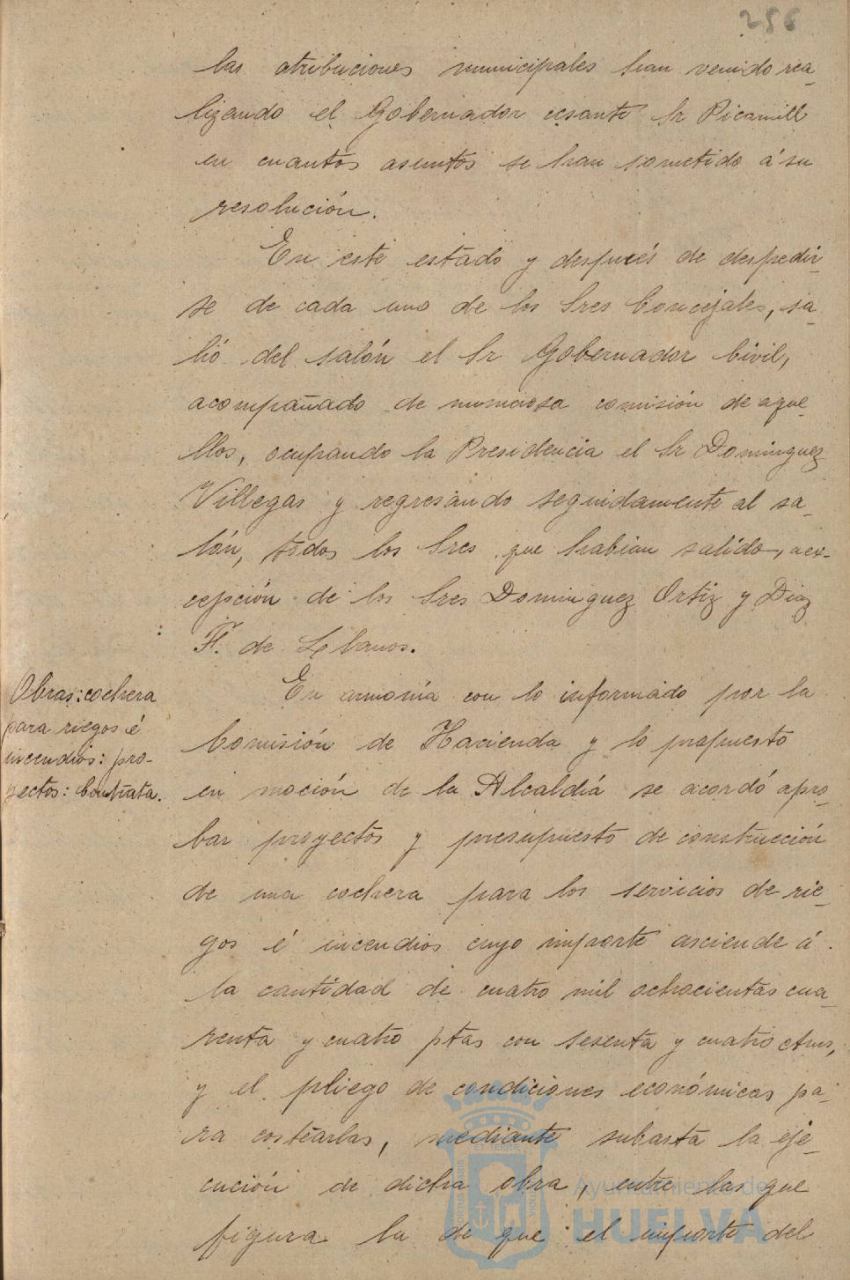 256
las atribuciones municipales han venido rea-
lizando el Gobernador cesante Sr Picamill
en cuantos asuntos se han sometido á su
resolución.
En este estado y después de despedir-
se de cada uno de los Sres Concejales, sa-
lió del salón el Sr Gobernador Civil,
acompañado de numerosa comisión de aque-
llos, ocupando la Presidencia el Sr Dominguez
Villegas y regresando seguidamente al sa-
lón, todos los Sres que habian salido, á ex-
cepción de los Sres Dominguez Ortiz y Diaz
F. de Lebanos.
Obras: cochera
para riegos é
incendios: pro-
yectos: Contrata.
En armonía con lo informado por la
Comisión de Hacienda y lo propuesto
en moción de la Alcaldía se acordó apro-
bar proyectos y presupuesto de construcción
de una cochera para los servicios de rie-
gos é incendios cuyo importe asciende á
la cantidad de cuatro mil ochocientas cua-
renta y cuatro ptas con sesenta y cuatro ctms,
y el pliego de condiciones económicas pa-
ra costearlas, mediante subasta la eje-
cución de dicha obra, entre las que
figura la de que el importe del
Ayuntamiento de
HUELVA